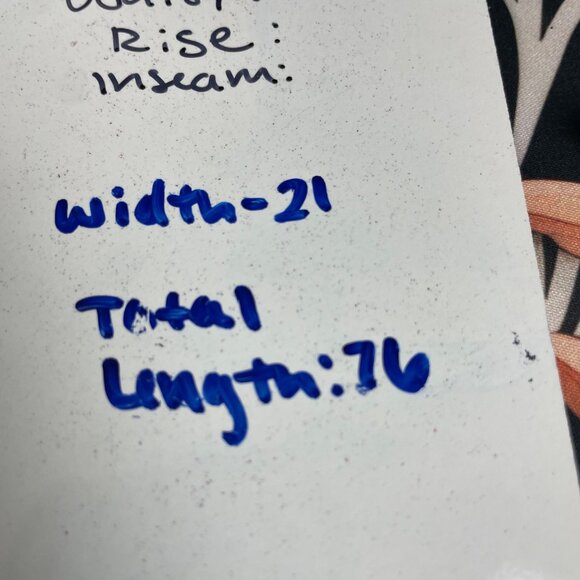 Rise:
inseam:
Width-21
Total
Length:76